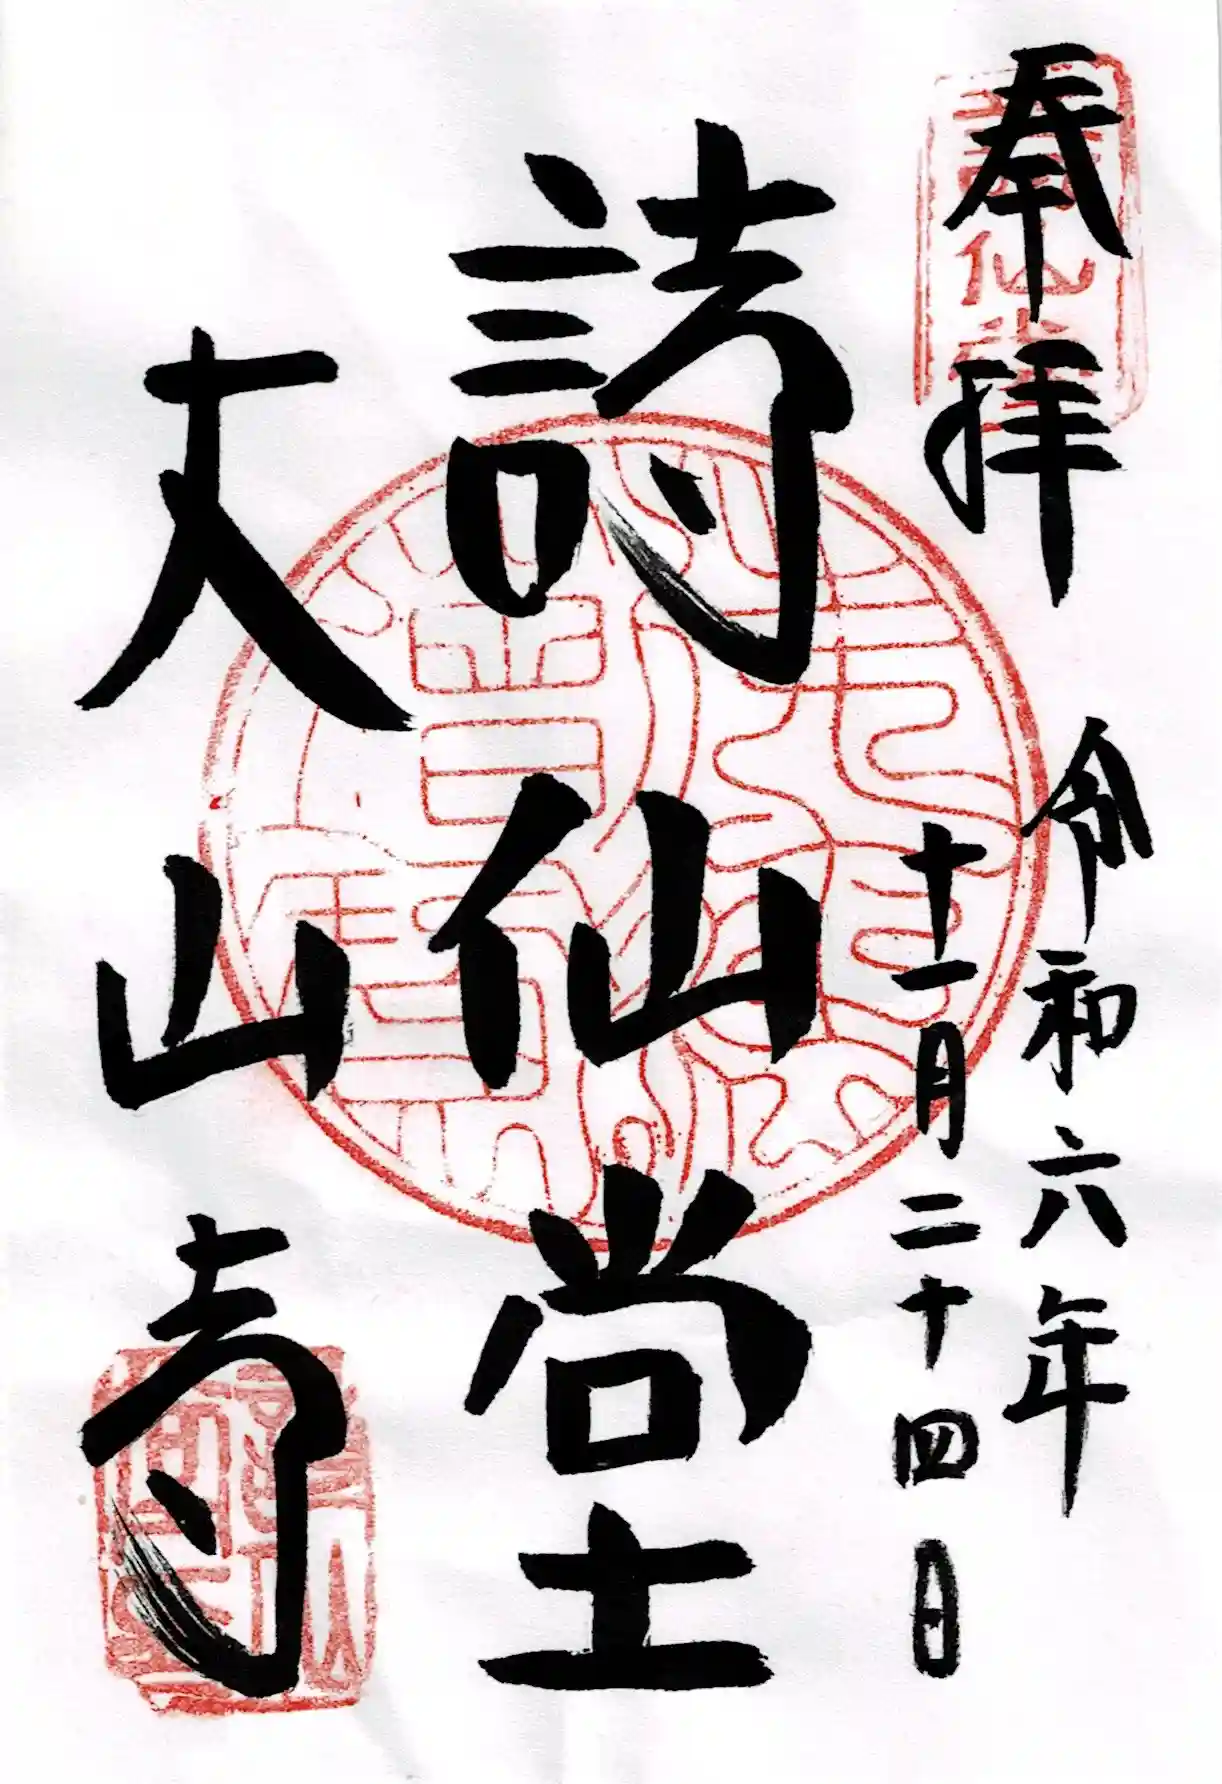 奉拝
令和六年
十一月二十四日
詩仙堂
丈山寺
詩仙堂